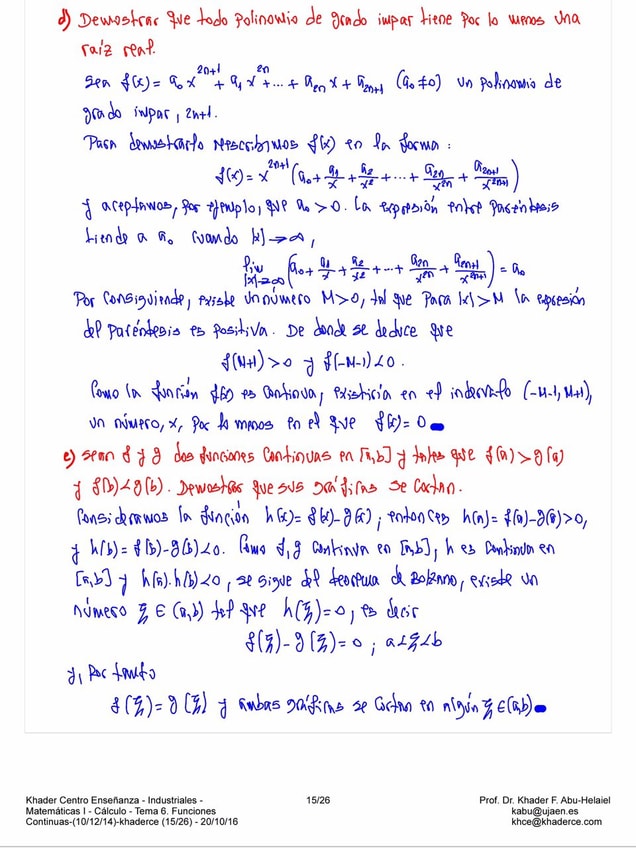 d) Demostrar que todo polinomio de grado impar tiene por lo menos una
raíz real.
Sea f(x) = a₀x²ⁿ⁺¹ + a₁x²ⁿ + ... + a₂ₙx + a₂ₙ₊₁ (a₀ ≠ 0) un polinomio de
grado impar, 2n+1.
Para demostrarlo reescribimos f(x) en la forma:
f(x) = x²ⁿ⁺¹ (a₀ + a₁/x + a₂/x² + ... + a₂ₙ/x²ⁿ + a₂ₙ₊₁/x²ⁿ⁺¹)
y aceptamos, por ejemplo, que a₀ > 0. La expresión entre paréntesis
tiende a a₀ cuando |x| → ∞,
lim |x|→∞ (a₀ + a₁/x + a₂/x² + ... + a₂ₙ/x²ⁿ + a₂ₙ₊₁/x²ⁿ⁺¹) = a₀
Por consiguiente, existe un número M > 0, tal que para |x| > M la expresión
del paréntesis es positiva. De donde se deduce que
f(M+1) > 0 y f(-M-1) < 0.
Como la función f(x) es continua, existiría en el intervalo (-M-1, M+1),
un número, x, por lo menos en el que f(x) = 0
e) Sean f y g dos funciones continuas en [a,b] y tales que f(a) > g(a)
y f(b) < g(b). Demostrar que sus gráficas se cortan.
Consideramos la función h(x) = f(x) - g(x); entonces h(a) = f(a) - g(a) > 0,
y h(b) = f(b) - g(b) < 0. Como f, g continua en [a,b], h es continua en
[a,b] y h(a).h(b) < 0, se sigue del teorema de Bolzano, existe un
número ξ ∈ (a,b) tal que h(ξ) = 0, es decir
f(ξ) - g(ξ) = 0 ; a < ξ < b
y, por tanto
f(ξ) = g(ξ) y ambas gráficas se cortan en algún ξ ∈ (a,b)
Khader Centro Enseñanza - Industriales -
Matemáticas I - Cálculo - Tema 6. Funciones
Continuas-(10/12/14)-khaderce (15/26) - 20/10/16
15/26
Prof. Dr. Khader F. Abu-Helaiel
kabu@ujaen.es
khce@khaderce.com